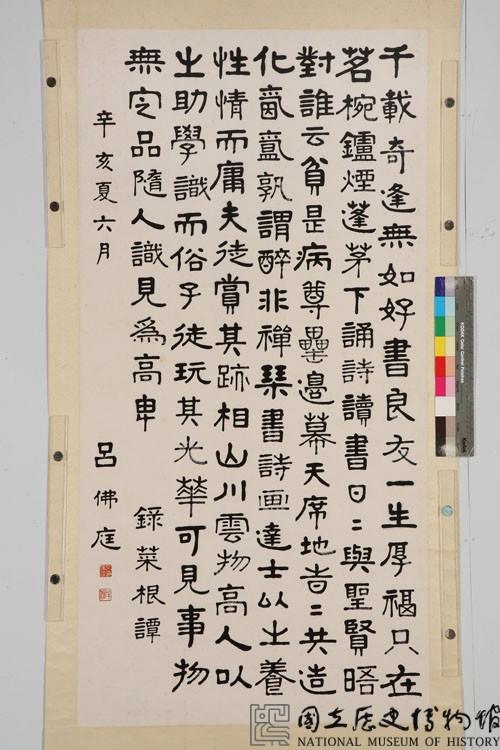 千載奇逢無如好書良友一生厚福只在
茗椀鑪煙蓬茅下誦詩讀書日〻與聖賢晤
對誰云貧是病尊罍邊幕天席地旹〻共造
化氤氳孰謂醉非禪琴書詩画達士以之養
性情而庸夫徒賞其跡相山川雲物高人以
之助學識而俗子徒玩其光華可見事物
無定品隨人識見爲高卑 錄菜根譚
辛亥夏六月 呂佛庭
國立歷史博物館
NATIONAL MUSEUM OF HISTORY